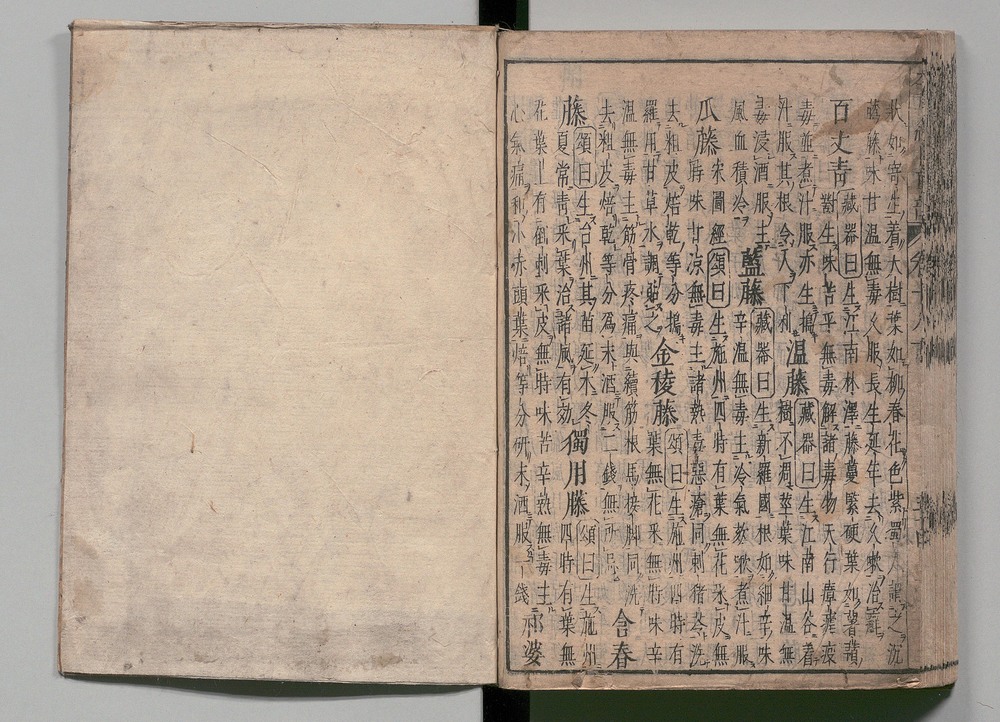 大如寄生着大樹葉如柳春花色紫蜀人謂之沉
藤味甘溫無毒久服長生延年去久嗽治
百丈青藏器曰生江南林澤藤蔓緊硬葉如薯蕷
對生味苦平無毒解諸毒物天行瘴瘧疫
毒並煮汁服亦生搗溫藤藏器曰生江南山谷着
汁服其根令人下利樹不凋莖葉味甘溫無
毒浸酒服主藍藤藏器曰生新羅國根如細辛味
風血積冷辛溫無毒主冷氣欬嗽煮汁服
瓜藤宋圖經頌曰生施州四時有葉無花采皮無
時味甘涼無毒主諸熱毒惡瘡同刺猪苓洗
去粗皮焙乾等分搗金稜藤頌曰生施州四時有
羅用甘草水調貼之葉無花采無時味辛
溫無毒主筋骨疼痛與續筋根馬接脚同洗含春
去粗皮焙乾等分爲末酒服二錢無所忌
藤頌曰生台州其苗延木冬獨用藤頌曰生施州
夏常青采葉治諸風有効四時有葉無
花葉上有倒刺采皮無時味苦辛熱無毒主祁婆
心氣痛和小赤頭葉焙等分研末酒服一錢